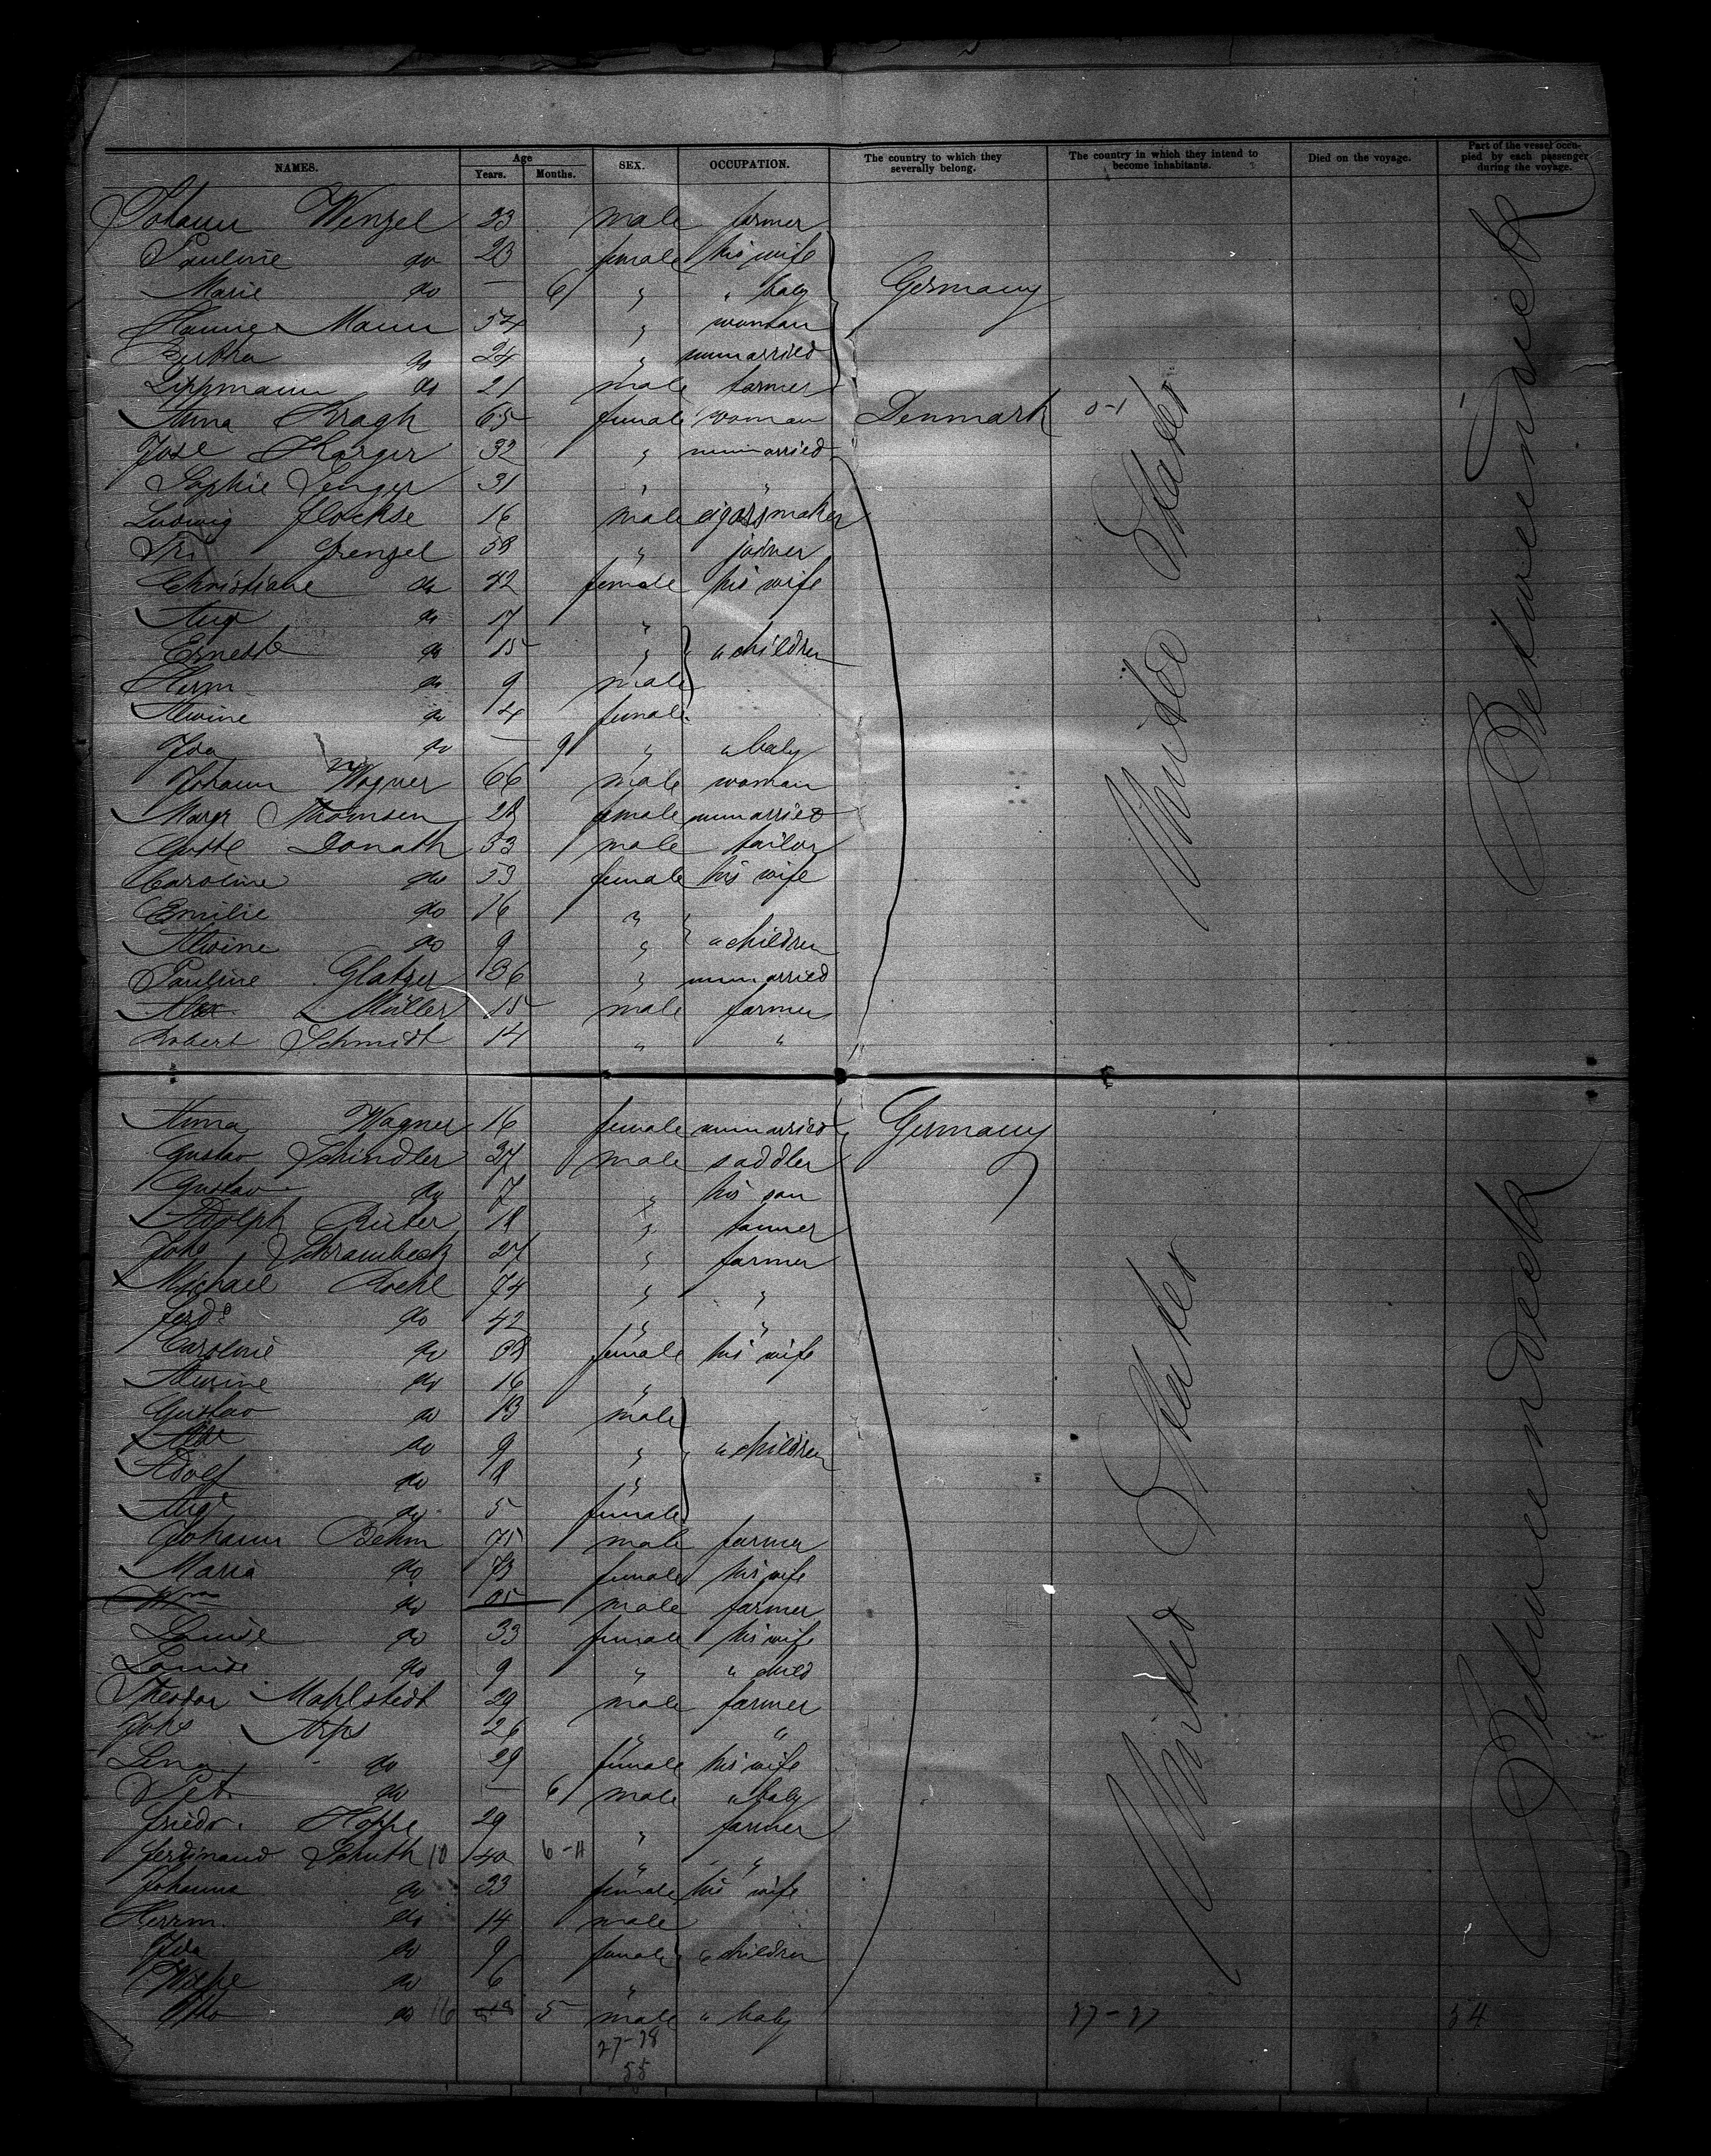 NAMES. Age Years. Months. SEX. OCCUPATION. The country to which they severally belong. The country in which they intend to become inhabitants. Died on the voyage. Part of the vessel occupied by each passenger during the voyage.
Johann Wenzel 23 male farmer
Pauline do 23 female his wife
Marie do — 6 " " baby Germany
Mann 54 " woman
Bertha do 24 " unmarried
Lippmann do 21 male farmer
Anna Kragh 65 female woman Denmark 0-1
Karger 32 " unmarried
Sophie Senger 31 " "
Ludwig 16 male
58 "
Christiane do 42 female his wife
Aug do 17 "
Erneste do 15 " " children
Herm do 9 male
Alwine do 4 female
Ida do — 9 " " baby
Johann Wagner 66 male woman
Margr Thomsen 28 female unmarried
Donath 53 male tailor
Caroline do 53 female his wife
Emilie do 16 "
Alwine do 9 " " children
Pauline Glatzer 36 " unmarried
Alex Müller 15 male farmer
Robert Schmidt 14 " "
United States
Betweendeck
Anna Wagner 16 female unmarried Germany
Gustav Schindler 27 male saddler
Gustav do 7 " his son
Adolph 18 " tanner
Johs Schrambeck 27 " farmer
Michael 74 " "
Ferdd do 42 " "
Caroline do 38 female his wife
do 16 "
Gustav do 13 male
do 9 " " children
Adolf do 8 "
Augt do 5 female
Johann Behm 75 male farmer
Maria do 73 female his wife
Wm do 35 male farmer
Louise do 33 female his wife
Louise do 9 " " child
Theodor Mahlstedt 29 male farmer
Johs Arps 26 " "
Lena do 29 female his wife
Pet. do — 6 male " baby
Friedr. Hoppe 29 " farmer
Ferdinand Schuth 10 40 6-11 " "
Johanna do 33 female his wife
Herrm. do 14 male
Ida do 9 female " children
do 6 "
Otto do 16 5 male " baby 27-27 54
27-28
55
United States
Betweendeck